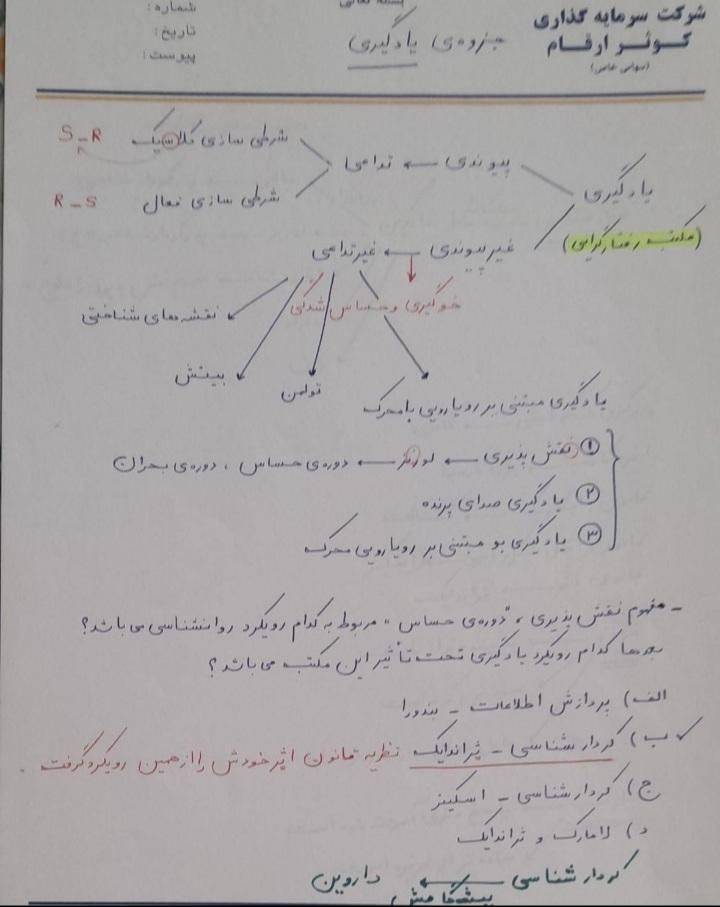 بسمه تعالی
شرکت سرمایه گذاری
کوثر ارقام
(سهامی خاص)
جزوه‌ی یادگیری
شماره:
تاریخ:
پیوست:
یادگیری
(مکتب رفتارگرایی)
پیوندی ← تداعی
شرطی سازی کلاسیک S - R
شرطی سازی فعال R - S
غیرپیوندی ← غیرتداعی
خوگیری و حساس شدگی
نقشه‌های شناختی
بینش
تولمن
یادگیری مبتنی بر رویارویی با محرک
① نقش پذیری ← لورنز ← دوره‌ی حساس ، دوره‌ی بحران
② یادگیری صدای پرنده
③ یادگیری بو مبتنی بر رویارویی محرک
- مفهوم نقش پذیری ، "دوره‌ی حساس" مربوط به کدام رویکرد روانشناسی می باشد؟
بعدها کدام رویکرد یادگیری تحت تأثیر این مکتب می باشد؟
الف) پردازش اطلاعات - بندورا
✓ ب) کردارشناسی - ثراندایک نظریه قانون اثر خودش را از همین رویکرد گرفت .
ج) کردارشناسی - اسکینر
د) لامارک و ثراندایک
کردارشناسی ← داروین